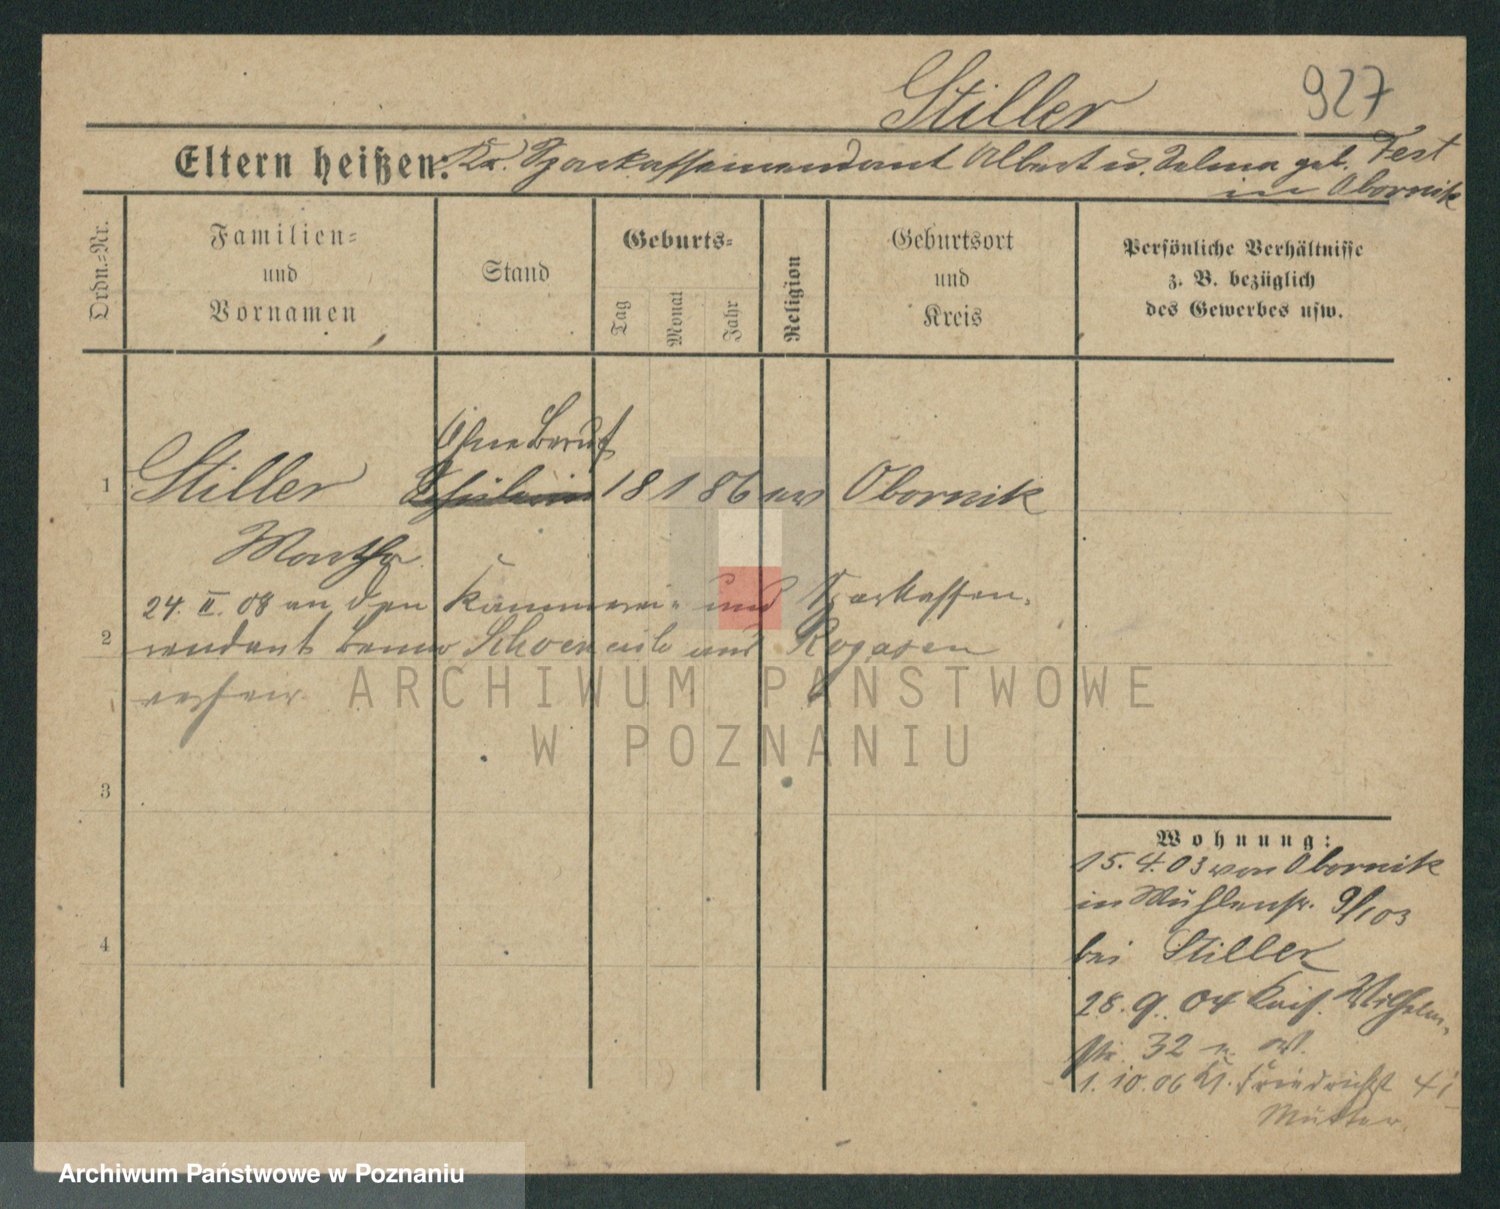 Stiller 927
Eltern heißen: Kr. Sparkassenrendant Albert u. Selma geb. Fest
in Obornik
Ordn.=Nr.
Familien=
und
Vornamen
Stand
Geburts=
Tag
Monat
Jahr
Religion
Geburtsort
und
Kreis
Persönliche Verhältnisse
z. B. bezüglich
des Gewerbes usw.
Ohne Beruf
1 Stiller Schülerin 18 1 86 ev Obornik
Martha
24. II. 08 an den Kämmerei- und Sparkassen-
2 rendant Benno und Rogasen
ARCHIWUM PAŃSTWOWE
W POZNANIU
3
4
Wohnung:
15. 4. 03 von Obornik
in Mühlenstr. 9/103
bei Stiller
28. 9. 04 Kais. Wilhelm-
str. 32
1. 10. 06 Kl. Friedrichst 41
Mutter
Archiwum Państwowe w Poznaniu